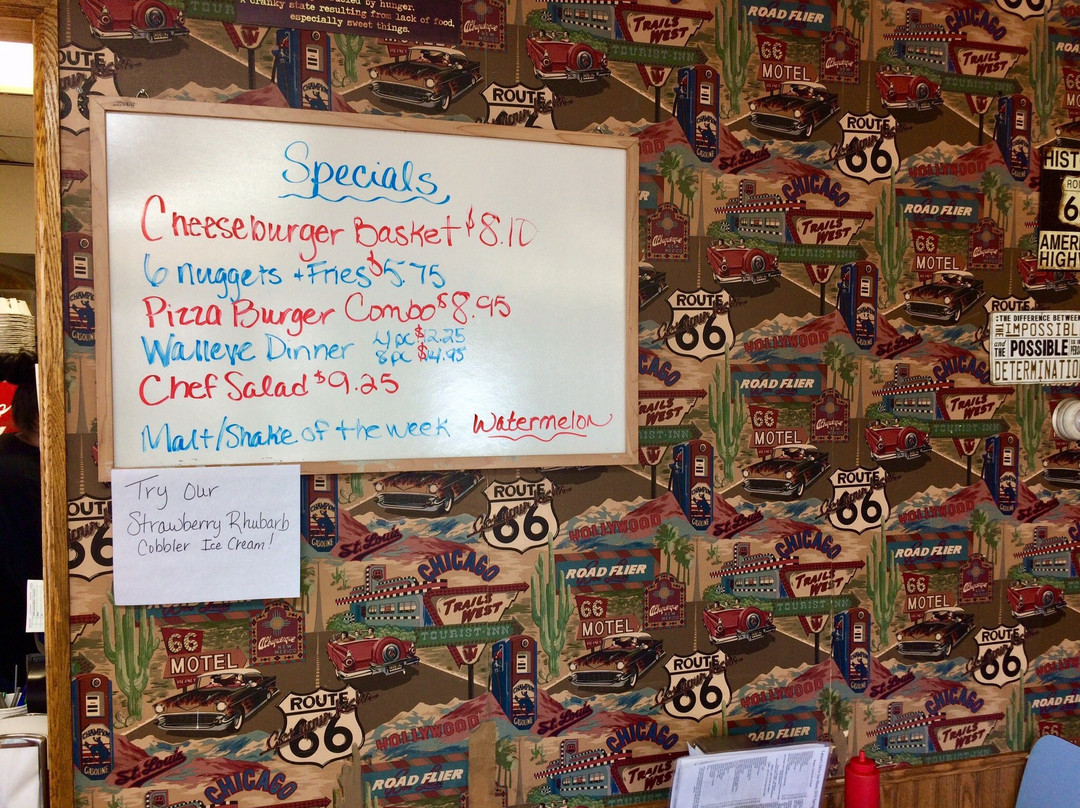 y hunger.
cranky state resulting from lack of food,
especially sweet things.
Specials
Cheeseburger Basket $8.10
6 nuggets + Fries $5.75
Pizza Burger Combo $8.95
Walleye Dinner 4 pc $12.25
8 pc $14.95
Chef Salad $9.25
Malt/Shake of the week Watermelon
Try Our
Strawberry Rhubarb
Cobbler Ice Cream!
HIST
RO
6
AMERI
HIGHW
THE DIFFERENCE BETWEEN
THE IMPOSSIBL
and THE POSSIBLE
DETERMINATIO
ROUTE
66
CHICAGO
TRAILS WEST
TOURIST INN
ROAD FLIER
66
MOTEL
Albuquerque
NEW MEXICO
HOLLYWOOD
St. Louis
CHAMPION
GASOLINE